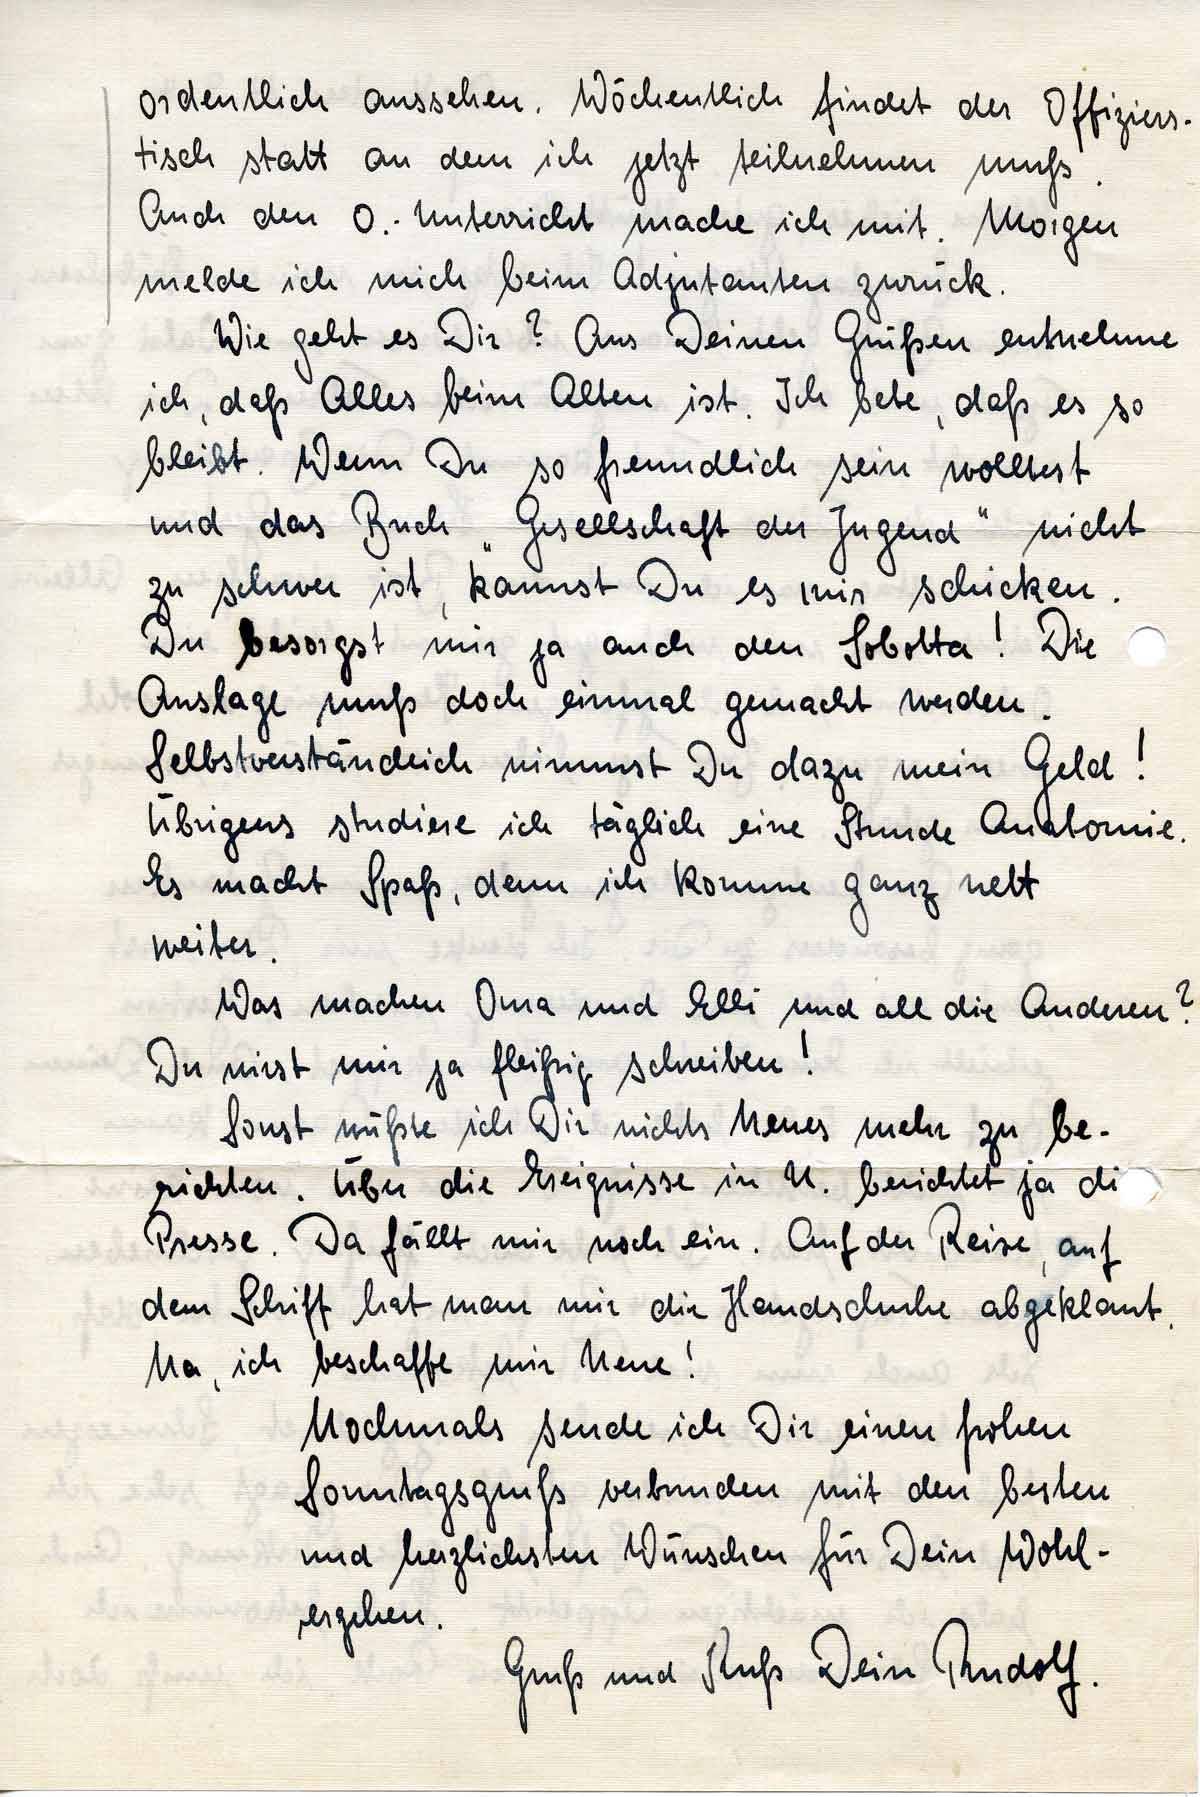 ordentlich aussehen. Wöchentlich findet der Offiziers-
tisch statt an dem ich jetzt teilnehmen muß.
Auch den O.-Unterricht mache ich mit. Morgen
melde ich mich beim Adjutanten zurück.
Wie geht es Dir? Aus Deinen Grüßen entnehme
ich, daß Alles beim Alten ist. Ich bete, daß es so
bleibt. Wenn Du so freundlich sein wolltest
und das Buch „Gesellschaft der Jugend" nicht
zu schwer ist, kannst Du es mir schicken.
Du besorgst mir ja auch den Sobotta! Die
Auslage muß doch einmal gemacht werden.
Selbstverständlich nimmst Du dazu mein Geld!
Übrigens studiere ich täglich eine Stunde Anatomie.
Es macht Spaß, denn ich komme ganz nett
weiter.
Was machen Oma und Elli und all die Anderen?
Du wirst mir ja fleißig schreiben!
Sonst wüßte ich Dir nichts Neues mehr zu be-
richten. Über die Ereignisse in N. berichtet ja di
Presse. Da fällt mir noch ein. Auf der Reise, auf
dem Schiff hat man mir die Handschuhe abgeklaut.
Na, ich beschaffe mir Neue!
Nochmals sende ich Dir einen frohen
Sonntagsgruß verbunden mit den besten
und herzlichsten Wünschen für Dein Wohl-
ergehen.
Gruß und Kuß Dein Rudolf.